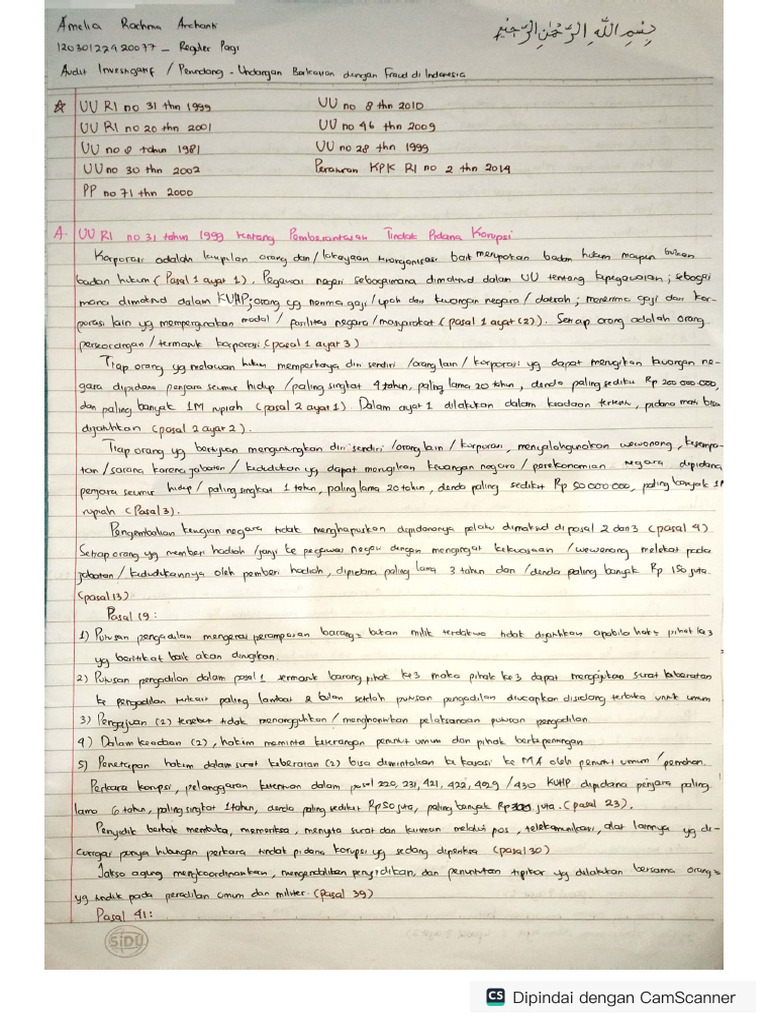 Amelia Rachma Archanti
بِسْمِ اللَّهِ الرَّحْمَٰنِ الرَّحِيمِ
12030122420077 – Reguler Pagi
Audit Investigatif / Perundang - Undangan Berkaitan dengan Fraud di Indonesia
☆ UU RI no 31 thn 1999
UU no 8 thn 2010
UU RI no 20 thn 2001
UU no 46 thn 2009
UU no 8 tahun 1981
UU no 28 thn 1999
UU no 30 thn 2002
Peraturan KPK RI no 2 thn 2014
PP no 71 thn 2000
A. UU RI no 31 tahun 1999 tentang Pemberantasan Tindak Pidana Korupsi
Korporasi adalah kumpulan orang dan/kekayaan terorganisasi baik merupakan badan hukum maupun bukan
badan hukum (Pasal 1 ayat 1). Pegawai negeri sebagaimana dimaksud dalam UU tentang kepegawaian; sebagai
mana dimaksud dalam KUHP; orang yg menrima gaji/upah dari keuangan negara/daerah; menerima gaji dari kor-
porasi lain yg mempergunakan modal/fasilitas negara/masyarakat (pasal 1 ayat (2)). Setiap orang adalah orang
perseorangan/termasuk korporasi (pasal 1 ayat 3)
Tiap orang yg melawan hukum memperkaya diri sendiri/orang lain/korporasi yg dapat merugikan keuangan ne-
gara dipidana penjara seumur hidup/paling singkat 4 tahun, paling lama 20 tahun, denda paling sedikit Rp 200 000.000,
dan paling banyak 1M rupiah (pasal 2 ayat 1) Dalam ayat 1 dilakukan dalam keadaan tertentu, pidana mati bisa
dijatuhkan (pasal 2 ayat 2).
Tiap orang yg bertujuan menguntungkan diri sendiri/orang lain/korporasi, menyalahgunakan wewenang, kesempa-
tan/sarana karena jabatan/kedudukan yg dapat merugikan keuangan negara/perekonomian negara dipidana
penjara seumur hidup/paling singkat 1 tahun, paling lama 20 tahun, denda paling sedikit Rp 50 000 000, paling banyak 1M
rupiah (Pasal 3).
Pengembalian kerugian negara tidak menghapuskan dipidananya pelaku dimaksud di pasal 2 dan 3 (pasal 4)
Setiap orang yg memberi hadiah/janji ke pegawai negeri dengan mengingat kekuasaan/wewenang melekat pada
jabatan/kedudukannya oleh pemberi hadiah, dipidana paling lama 3 tahun dan/denda paling banyak Rp 150 juta.
(pasal 13)
Pasal 19:
1) Putusan pengadilan mengenai perampasan barang² bukan milik terdakwa tidak dijatuhkan apabila hak² pihak ke3
yg beritikat baik akan dirugikan.
2) Putusan pengadilan dalam pasal 1 termasuk barang pihak ke3 maka pihak ke3 dapat mengajukan surat keberatan
ke pengadilan terkait paling lambat 2 bulan setelah putusan pengadilan diucapkan disidang terbuka untuk umum
3) Pengajuan (2) tersebut tidak menangguhkan/menghentikan pelaksanaan putusan pengadilan
4) Dalam keadaan (2), hakim meminta keterangan penuntut umum dan pihak berkepentingan
5) Penetapan hakim dalam surat keberatan (2) bisa dimintakan ke kasasi ke MA oleh penuntut umum/pemohon.
Perkara korupsi, pelanggaran ketentuan dalam pasal 220, 231, 421, 422, 429/430 KUHP dipidana penjara paling
lama 6 tahun, paling singkat 1 tahun, denda paling sedikit Rp 50 juta, paling banyak Rp 300 juta. (pasal 23).
Penyidik berhak membuka, memeriksa, menyita surat dan kiriman melalui pos, telekomunikasi, alat lainnya yg di-
curigai punya hubungan perkara tindak pidana korupsi yg sedang diperiksa (pasal 30)
Jaksa agung mengkoordinasikan, mengendalikan penyidikan, dan penuntutan tipikor yg dilakukan bersama orang²
yg tunduk pada peradilan umum dan militer. (pasal 39)
Pasal 41:
SIDU
CS Dipindai dengan CamScanner